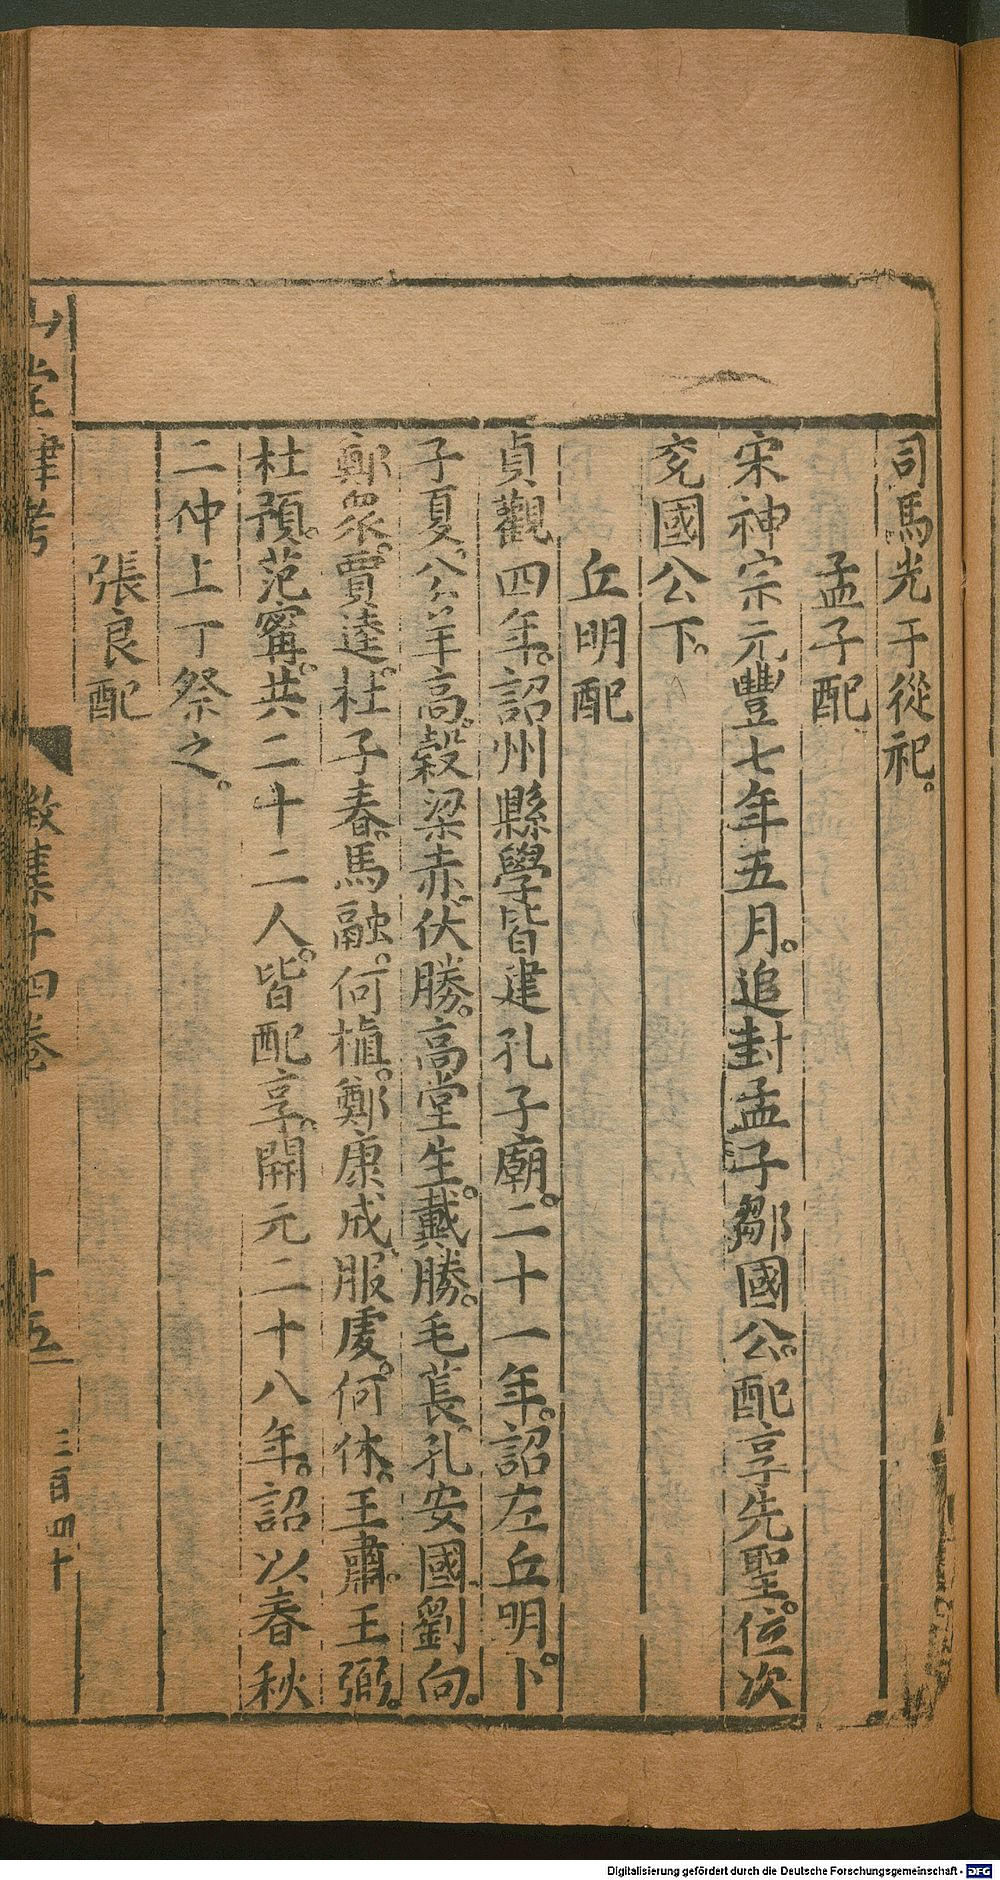 司馬光于從祀。
孟子配
宋神宗元豐七年五月。追封孟子鄒國公。配享先聖。位次
兖國公下。
丘明配
貞觀四年。詔州縣學皆建孔子廟。二十一年。詔左丘明。卜
子夏。公羊高。穀梁赤。伏勝。高堂生。戴勝。毛萇。孔安國。劉向。
鄭眾。賈逵。杜子春。馬融。何植。鄭康成。服虔。何休。王肅。王弼。
杜預。范寗。共二十二人。皆配享。開元二十八年。詔以春秋
二仲上丁祭之。
張良配
山堂肆考
徵集十四卷
十五
三百四十
Digitalisierung gefördert durch die Deutsche Forschungsgemeinschaft - DFG